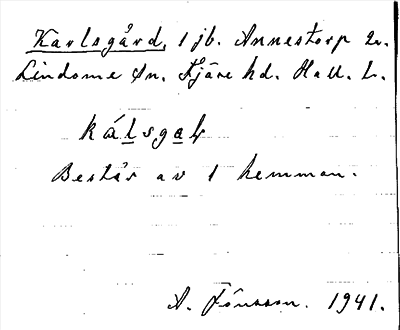 Karlsgård, 1 jb. Annestorp 2.
Lindome sn. Fjäre hd. Hall. L.
kálsgaḷ
Består av 1 hemman.
A. Jönsson. 1941.